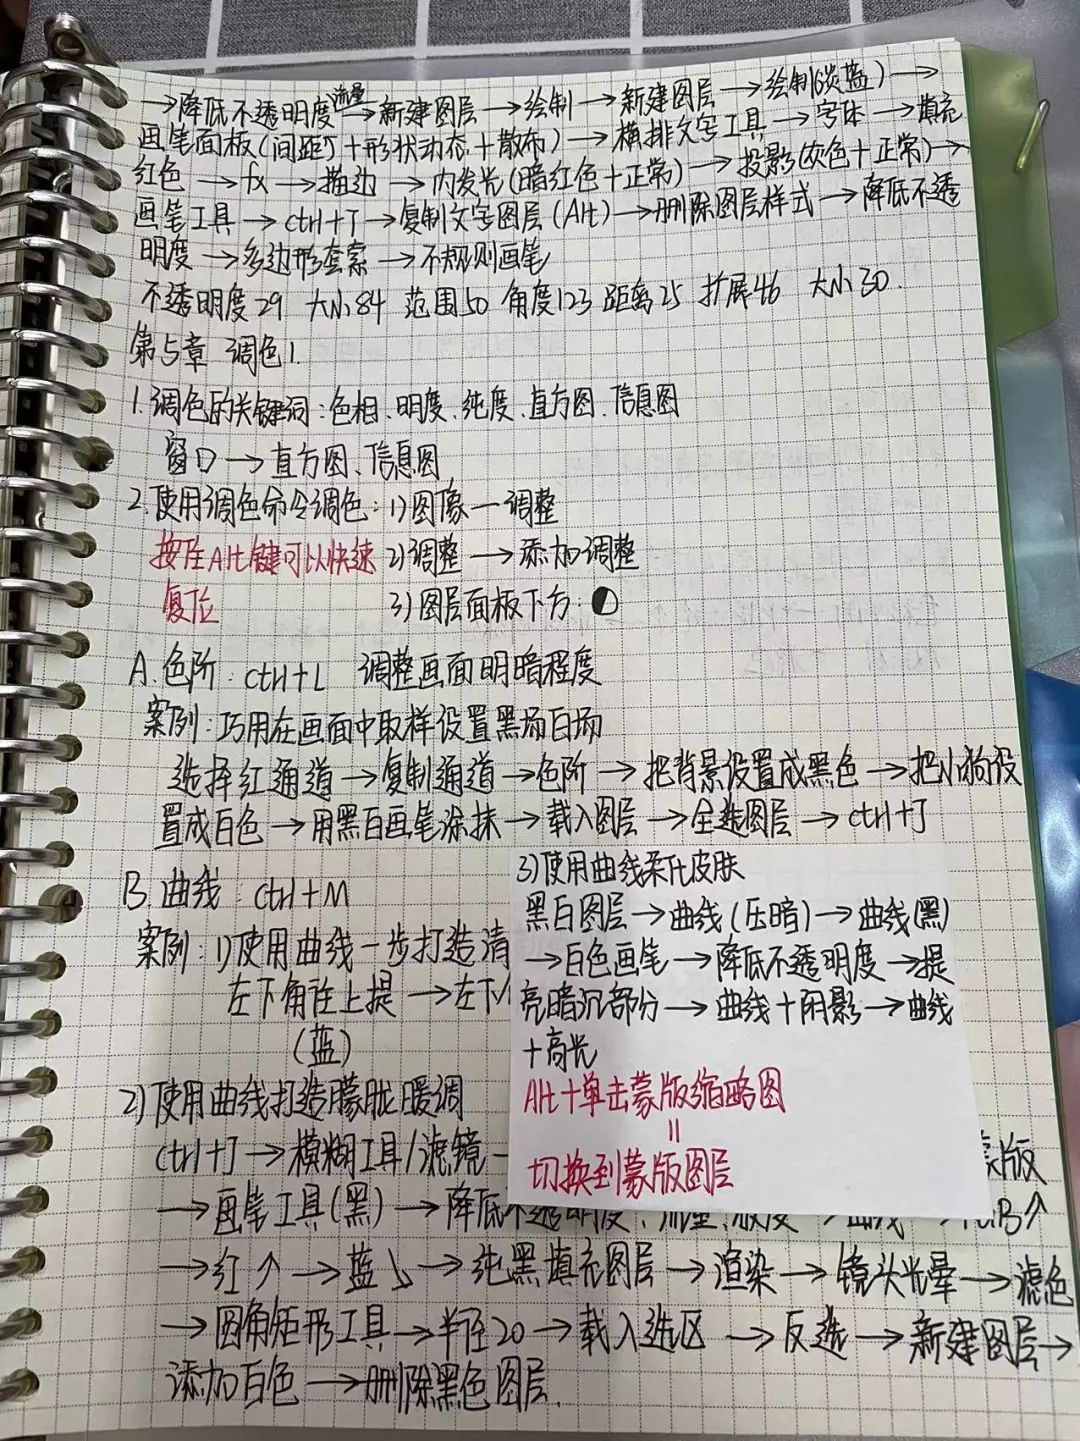 →降低不透明度 流量→新建图层→绘制→新建图层→绘制(淡蓝)→
画笔面板(间距+形状动态+散布)→横排文字工具→字体→填充
红色→fx→描边→内发光(暗红色+正常)→投影(灰色+正常)→
画笔工具→ctrl+T→复制文字图层(Alt)→删除图层样式→降低不透
明度→多边形套索→不规则画笔
不透明度29 大小84 范围50 角度123 距离25 扩展46 大小30.
第5章 调色1.
1.调色的关键词:色相、明度、纯度、直方图、信息图
窗口→直方图、信息图
2.使用调色命令调色:1)图像一调整
按住Alt键可以快速 2)调整→添加调整
复位 3)图层面板下方:
A.色阶:ctrl+L 调整画面明暗程度
案例:巧用在画面中取样设置黑场白场
选择红通道→复制通道→色阶→把背景设置成黑色→把小狗设
置成白色→用黑白画笔涂抹→载入图层→全选图层→ctrl+J
B.曲线:ctrl+M
案例:1)使用曲线一步打造清
左下角往上提→左下
(蓝)
2)使用曲线打造朦胧暖调
ctrl+J→模糊工具/滤镜 蒙版
→画笔工具(黑)→降低不透明度、流量、 →曲线→RGB↑
→红↑→蓝↓→纯黑填充图层→渲染→镜头光晕→滤色
→圆角矩形工具→半径20→载入选区→反选→新建图层→
添加白色→删除黑色图层.
3)使用曲线柔化皮肤
黑白图层→曲线(压暗)→曲线(黑)
→白色画笔→降低不透明度→提
亮暗沉部分→曲线+阴影→曲线
+高光
Alt+单击蒙版缩略图
=
切换到蒙版图层